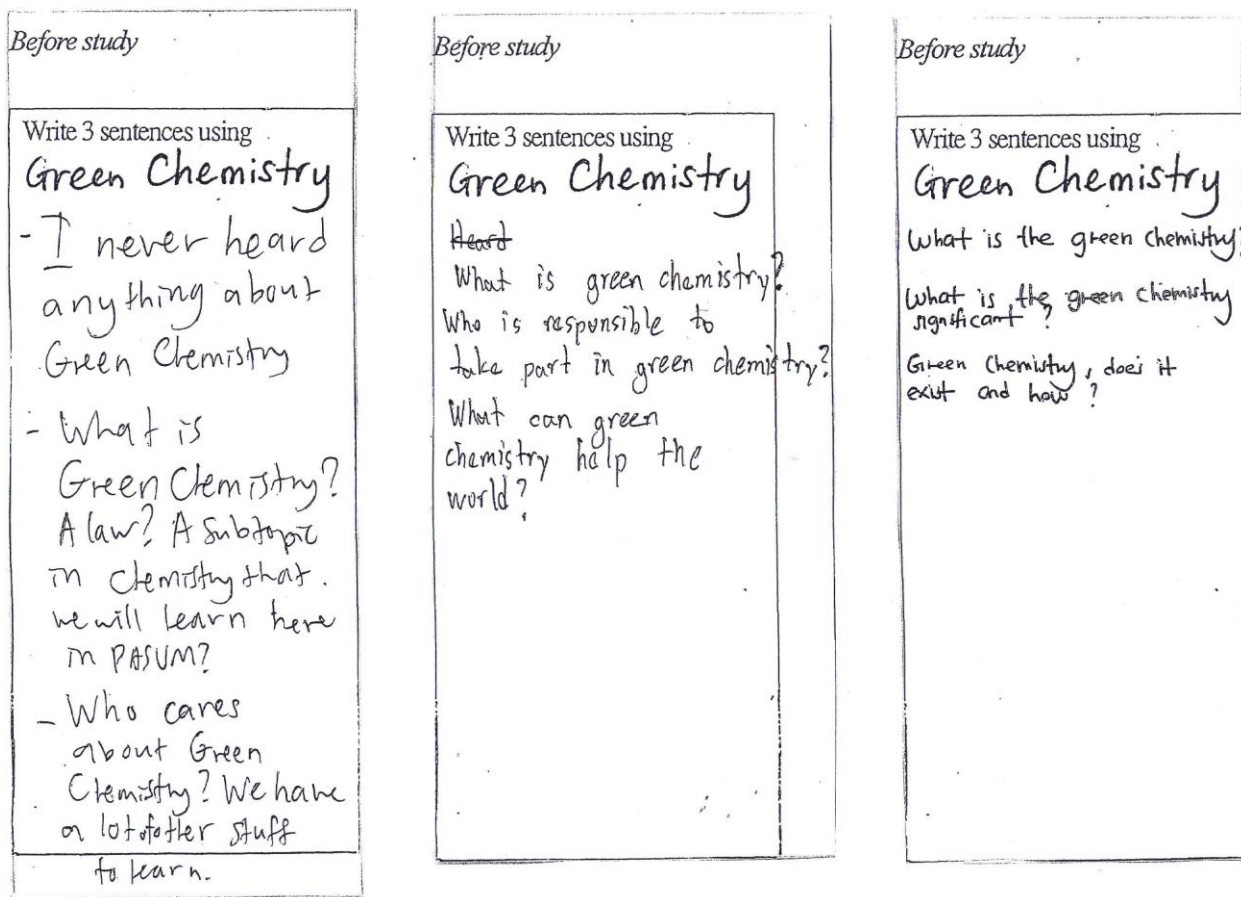 Before study
Write 3 sentences using
Green Chemistry
- I never heard
anything about
Green Chemistry
- What is
Green Chemistry?
A law? A subtopic
in chemistry that
we will learn here
in PASUM?
- Who cares
about Green
Chemistry? We have
a lot of other stuff
to learn.
Before study
Write 3 sentences using
Green Chemistry
Heard
What is green chemistry?
Who is responsible to
take part in green chemistry?
What can green
chemistry help the
world?
Before study
Write 3 sentences using
Green Chemistry
What is the green chemistry?
What is the green chemistry
significant?
Green Chemistry, does it
exist and how?